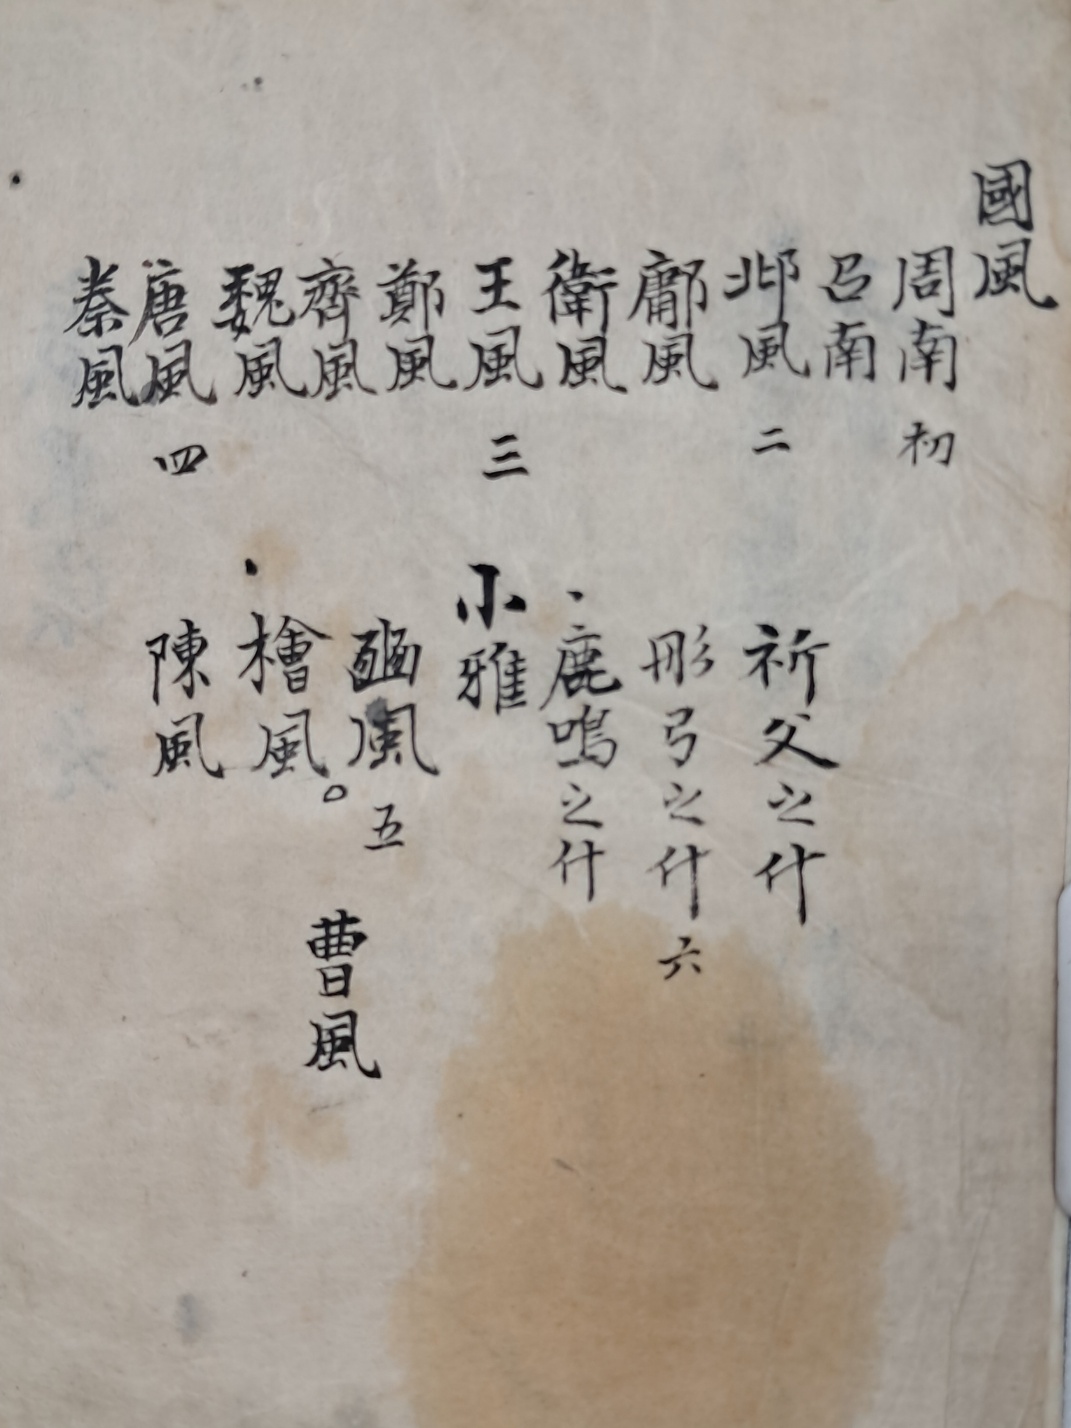 國風
周南 初
召南
邶風 二
鄘風
衛風
王風 三
鄭風
齊風
魏風
唐風 四
秦風
祈父之什
彤弓之什 六
鹿鳴之什
小雅
豳風 五
檜風
曹風
陳風